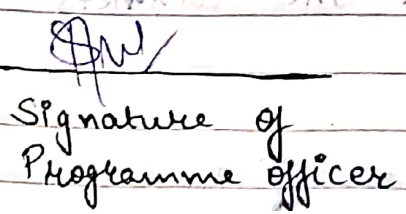 Signature of
Programme officer